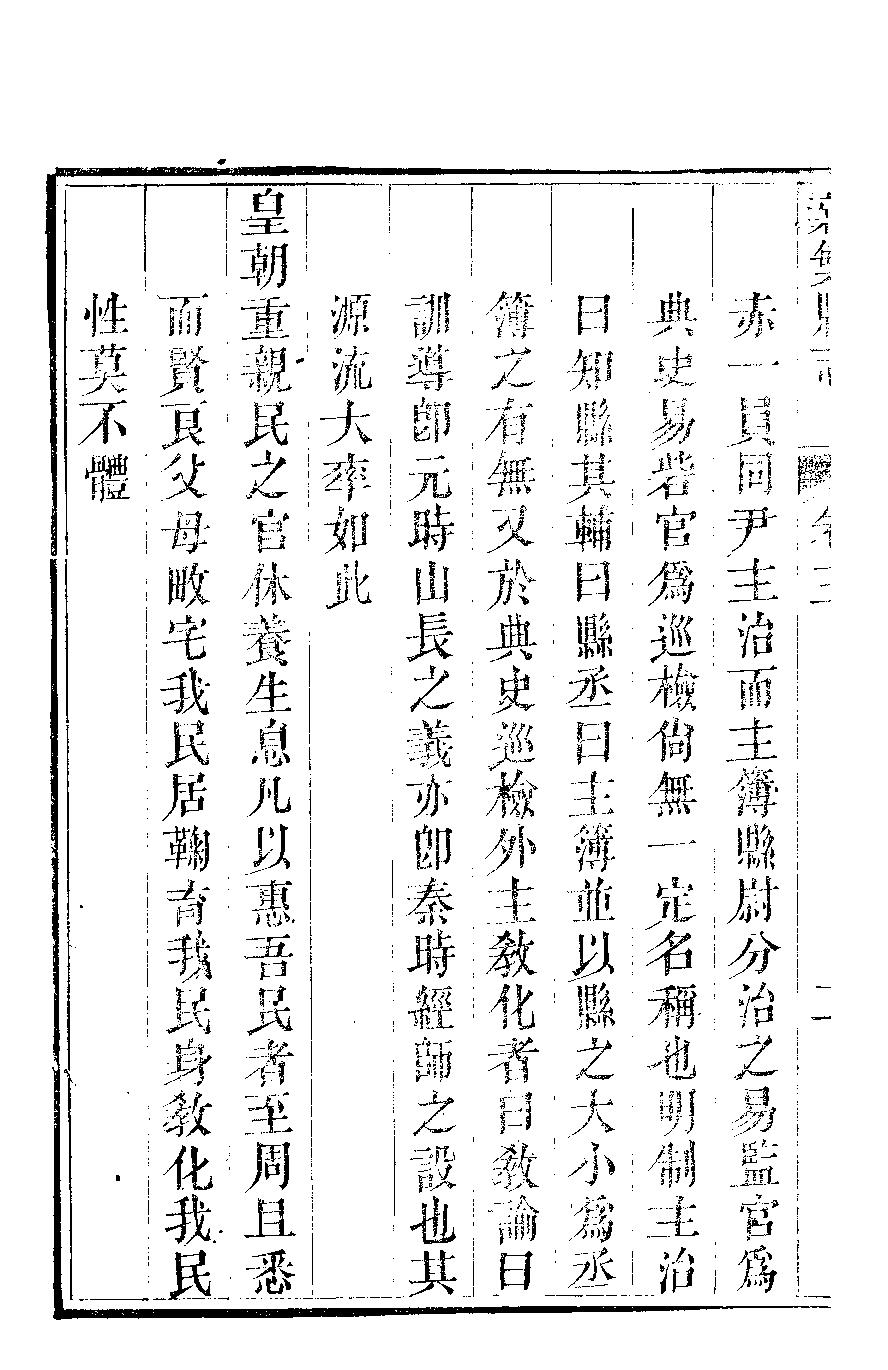 赤一員同尹主治而主簿縣尉分治之易監官爲
典史易砦官爲巡檢尙無一定名稱也明制主治
曰知縣其輔曰縣丞曰主簿並以縣之大小爲丞
簿之有無又於典史巡檢外主敎化者曰敎諭曰
訓導卽元時山長之義亦卽秦時經師之設也其
源流大率如此
皇朝重親民之官休養生息凡以惠吾民者至周且悉
而賢良父母畝宅我民居鞠育我民身敎化我民
性莫不體
二